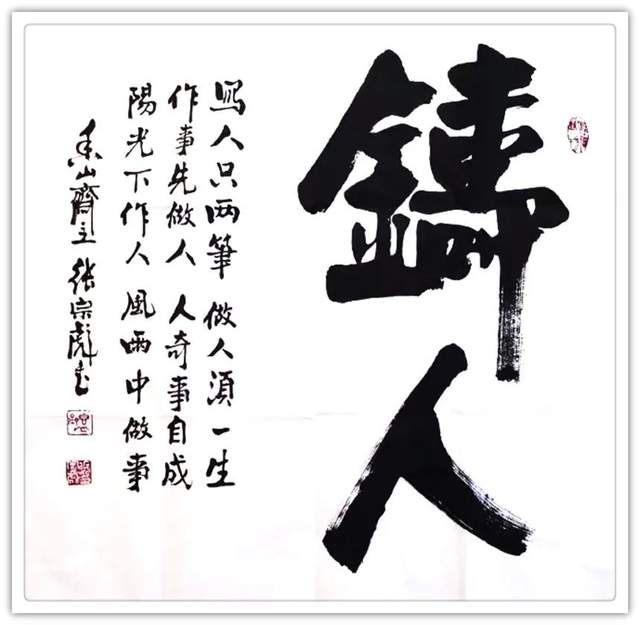 鑄人
写人只两筆 做人須一生
作事先做人 人奇事自成
陽光下作人 風雨中做事
香山齋主 张宗彪书